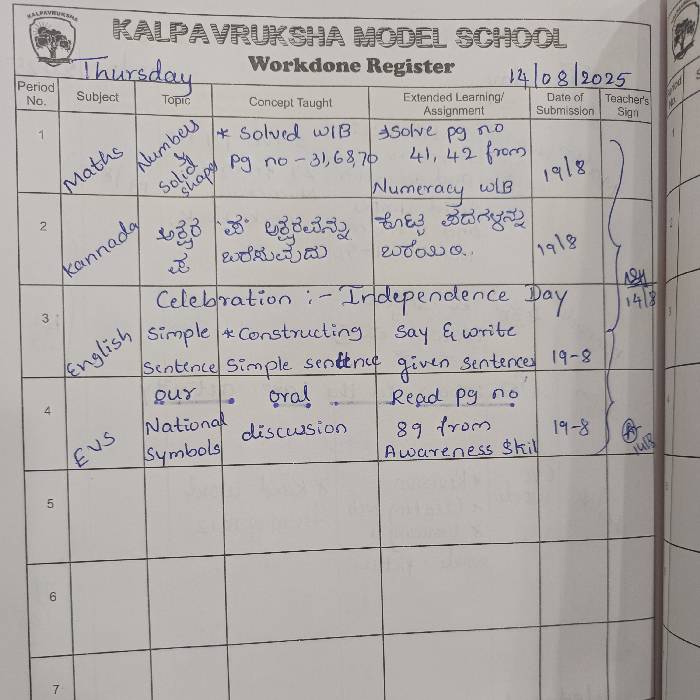 KALPAVRUKSHA
KALPAVRUKSHA MODEL SCHOOL
Workdone Register
Thursday 14/08/2025
Period No. Subject Topic Concept Taught Extended Learning/ Assignment Date of Submission Teacher's Sign
1 Maths Numbers * Solved W/B * Solve pg no
Solid shapes pg no - 31, 68, 70 41, 42 from 19/8
Numeracy W/B
2 Kannada ಅಕ್ಷರ 'ಪ' ಅಕ್ಷರವನ್ನು ಕೊಟ್ಟ ಪದಗಳನ್ನು 19/8
ಪ ಬರೆಸುವುದು ಬರೆಯಿರಿ.
14/8
Celebration :- Independence Day
3 English Simple * Constructing Say & write
Sentence Simple sentence given sentences 19-8
4 EVS our oral Read pg no
National discussion 89 from 19-8
Symbols Awareness Skil
14/8
5
6
7